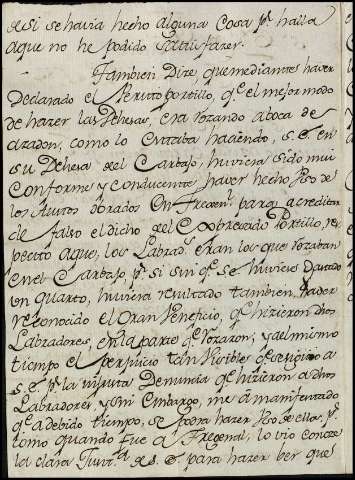 de si se havia hecho alguna cosa pr. halla
aque no he podido satisfazer.
Tambien Dire, que mediante haver
Declarado el Perito portillo, qe. el mejor modo
de hazer las Dehesas, era rozando a boca de
azadon, como lo estaba haciendo, S. E. en
su Dehesa del Carbajo, huviera sido mui
Conforme y conducente haver hecho Uso de
los Autos obrados en Fregenl. para acreditar
de falso el dicho del Expresado Portillo, res
pecto aque, los Labrads. eran los que rozaban
en el Carbajo, pr. si sin qe. se huviese Dado
un quarto, huviera resultado tambien haver
reconocido el Gran Veneficio, qe. hizieron dhos
Labradores, en la parte qe. rozaron; y al mismo
tiempo el perjuicio tan Visible qe. a
S. E. pr. la injusta Denuncia qe. hizieron a dhos
Labradores, y sin Embargo, me a manifestado
qe. a debido tiempo, se podra hazer Uso de ellos, pr.
como quando fue a Fregenal, lo vio conoze
la clara de S. E. para hazer ber que